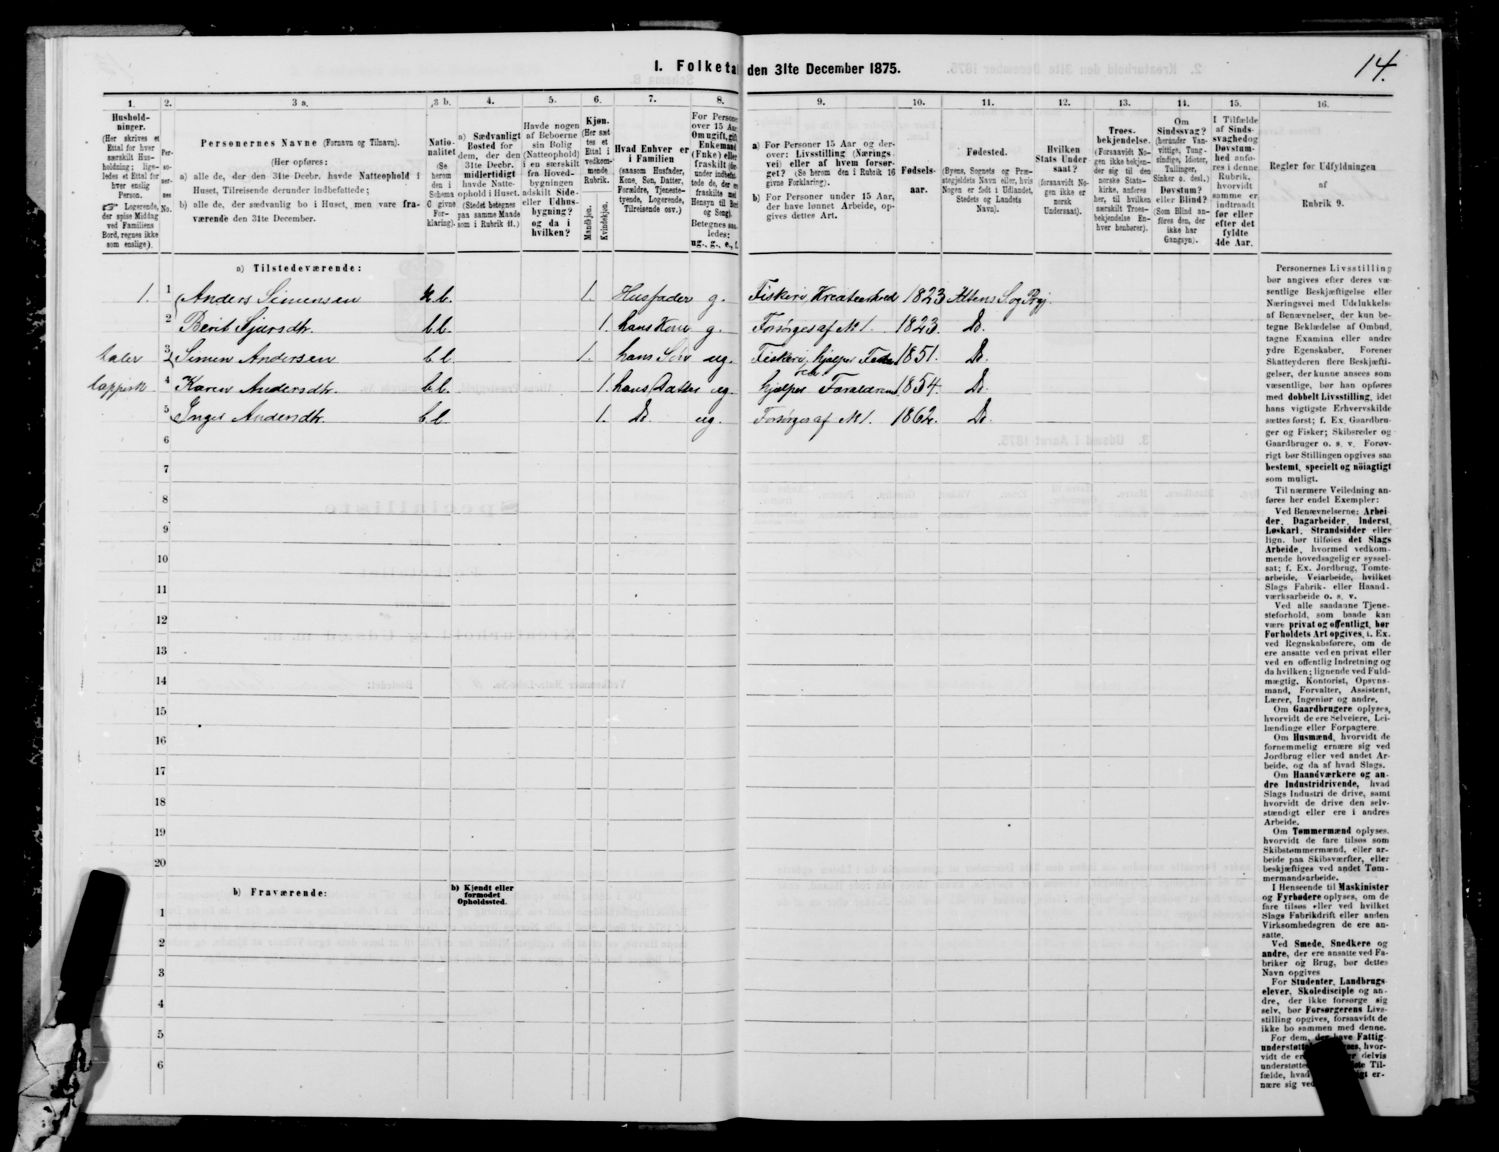 14.
I. Folketal den 31te December 1875.
1.
2.
3 a.
3 b.
4.
5.
6.
7.
8.
9.
10.
11.
12.
13.
14.
15.
16.
Hushold-
ninger.
(Her skrives et
Ettal for hver
særskilt Hus-
holdning; lige-
ledes et Ettal for
hver enslig
Person.
☞ Logerende,
der spise Middag
ved Familiens
Bord, regnes ikke
som enslige).
Per-
so-
ner-
ses
No.
Personernes Navne (Fornavn og Tilnavn).
(Her opføres:
a) alle de, der den 31te Decbr. havde Natteophold i
Huset, Tilreisende derunder indbefattede;
b) alle de, der sædvanlig bo i Huset, men vare fra-
værende den 31te December.
Natio-
nalitet
(Se
herom
den i
Schema
C givne
For-
klaring).
a) Sædvanligt
Bosted for
dem, der den
31te Decbr.
midlertidigt
havde Natte-
ophold i Huset.
(Stedet betegnes
paa samme Maade
som i Rubrik 11.)
Havde nogen
af Beboerne
sin Bolig
(Natteophold)
i en særskilt
fra Hoved-
bygningen
adskilt Side-
eller Udhus-
bygning?
og da i
hvilken?
Kjøn.
(Her sæt
tes et
Ettal i
vedkom-
mende
Rubrik.
Mandkjøn.
Kvindekjøn.
Hvad Enhver er
i Familien
(saasom Husfader,
Kone, Søn, Datter,
Forældre, Tjeneste-
tyende, Logerende,
Tilreisende osv.)
For Persone
over 15 Aar
Om ugift, gift
Enkemand
(Enke) eller
fraskilt
Betegnes saa-
ledes:
ug., g., e., f.
a) For Personer 15 Aar og der-
over: Livsstilling (Nærings-
vei) eller af hvem forsør-
get? (Se herom den i Rubrik 16
givne Forklaring).
b) For Personer under 15 Aar,
der have lønnet Arbeide, op-
gives dettes Art.
Fødsels-
aar.
Fødested.
(Byens, Sognets og Præ-
stegjeldets Navn eller, hvis
Nogen er født i Udlandet,
Stedets og Landets
Navn).
Hvilken
Stats Under-
saat?
(forsaavidt No-
gen ikke er
norsk
Undersaat).
Troes-
bekjendelse.
(Forsaavidt No-
gen ikke bekjen-
der sig til den
norske Stats-
kirke, anføres
her, til hvilken
særskilt Troes-
bekjendelse En-
hver henhører).
Om
Sindssvag?
(herunder Van-
vittige, Tung-
sindige, Idioter,
Tullinger,
Sinker o. desl.)
Døvstum?
eller Blind?
(Som Blind an-
føres den, der
ikke har
Gangsyn).
I Tilfælde
af Sinds-
svaghed og
Døvstum-
hed anfø-
res i denne
Rubrik,
hvorvidt
samme er
indtraadt
før eller
efter det
fyldte
4de Aar.
Regler for Udfyldningen
af
Rubrik 9.
a) Tilstedeværende:
1. 1 Anders Simensen N. b. 1. Husfader g. Fiskeri, Kreaturhold 1823 Altens Sog Prgj.
2 Berit Sjursdtr. b. b. 1. hans Kone g. Forsørges af No 1. 1823. Do.
taler 3 Simen Andersen b. b. 1. hans Søn ug. Fiskeri, hjelper Fader 1851. Do.
lappisk 4 Karen Andersdtr. b. b. 1. hans Datter ug. hjelper Forældrene 1854. Do.
5 Inger Andersdtr. b. b. 1. Do. ug. Forsørges af No 1. 1862. Do.
6
7
8
9
10
11
12
13
14
15
16
17
18
19
20
b) Fraværende:
b) Kjendt eller
formodet
Opholdssted.
1
2
3
4
5
6
Personernes Livsstilling
bør angives efter deres væ-
sentlige Beskjæftigelse eller
Næringsvei med Udelukkelse
af Benævnelser, der kun be-
tegne Beklædelse af Ombud,
tagne Examina eller andre
ydre Egenskaber. Forener
Skatteyderen flere Beskjæfti-
gelser, der kunne ansees som
væsentlige, bør han opføres
med dobbelt Livsstilling, idet
hans vigtigste Erhvervskilde
sættes først; f. Ex. Gaardbru-
ger og Fisker; Skibsreder og
Gaardbruger o. s. v. Forøv-
rigt bør Stillingen opgives saa
bestemt, specielt og nøiagtigt
som muligt.
Til nærmere Veiledning an-
føres her endel Exempler:
Ved Benævnelserne: Arbei-
der, Dagarbeider, Inderst,
Løskarl, Strandsidder eller
lign. bør tilføies det Slags
Arbeide, hvormed vedkom-
mende hovedsagelig er syssel-
sat; f. Ex. Jordbrug, Tomte-
arbeide, Veiarbeide, hvilket
Slags Fabrik- eller Haand-
værksarbeide o. s. v.
Ved alle saadanne Tjene-
steforhold, som baade kan
være privat og offentligt, bør
Forholdets Art opgives, f. Ex.
ved Regnskabsførere, om de
ere ansatte ved en privat eller
ved en offentlig Indretning og
da hvilken; lignende ved Fuld-
mægtig, Kontorist, Opsyns-
mand, Forvalter, Assistent,
Lærer, Ingeniør og andre.
Om Gaardbrugere oplyses,
hvorvidt de ere Selveiere, Lei-
lændinge eller Forpagtere.
Om Husmænd, hvorvidt de
fornemmelig ernære sig ved
Jordbrug eller ved andet Ar-
beide, og da af hvad Slags.
Om Haandværkere og an-
dre Industridrivende, hvad
Slags Industri de drive, samt
hvorvidt de drive den selv-
stændigt eller ere i andres
Arbeide.
Om Tømmermænd oplyses,
hvorvidt de fare tilsøs som
Skibstømmermænd, eller ar-
beide paa Skibsværfter, eller
beskjæftiges ved andet Tøm-
mermandsarbeide.
I Henseende til Maskinister
og Fyrbødere oplyses, om de
fare tilsøs eller ved hvilket
Slags Fabrikdrift eller anden
Virksomhedsgren de ere an-
satte.
Ved Smede, Snedkere og
andre, der ere ansatte ved Fa-
briker og Brug, bør dettes
Navn opgives
For Studenter, Landbrugs-
elever, Skoledisciple og an-
dre, der ikke forsørge sig
selv, bør Forsørgerens Livs-
stilling opgives, forsaavidt de
ikke bo sammen med denne.
For dem, der have Fattig-
understøttelse